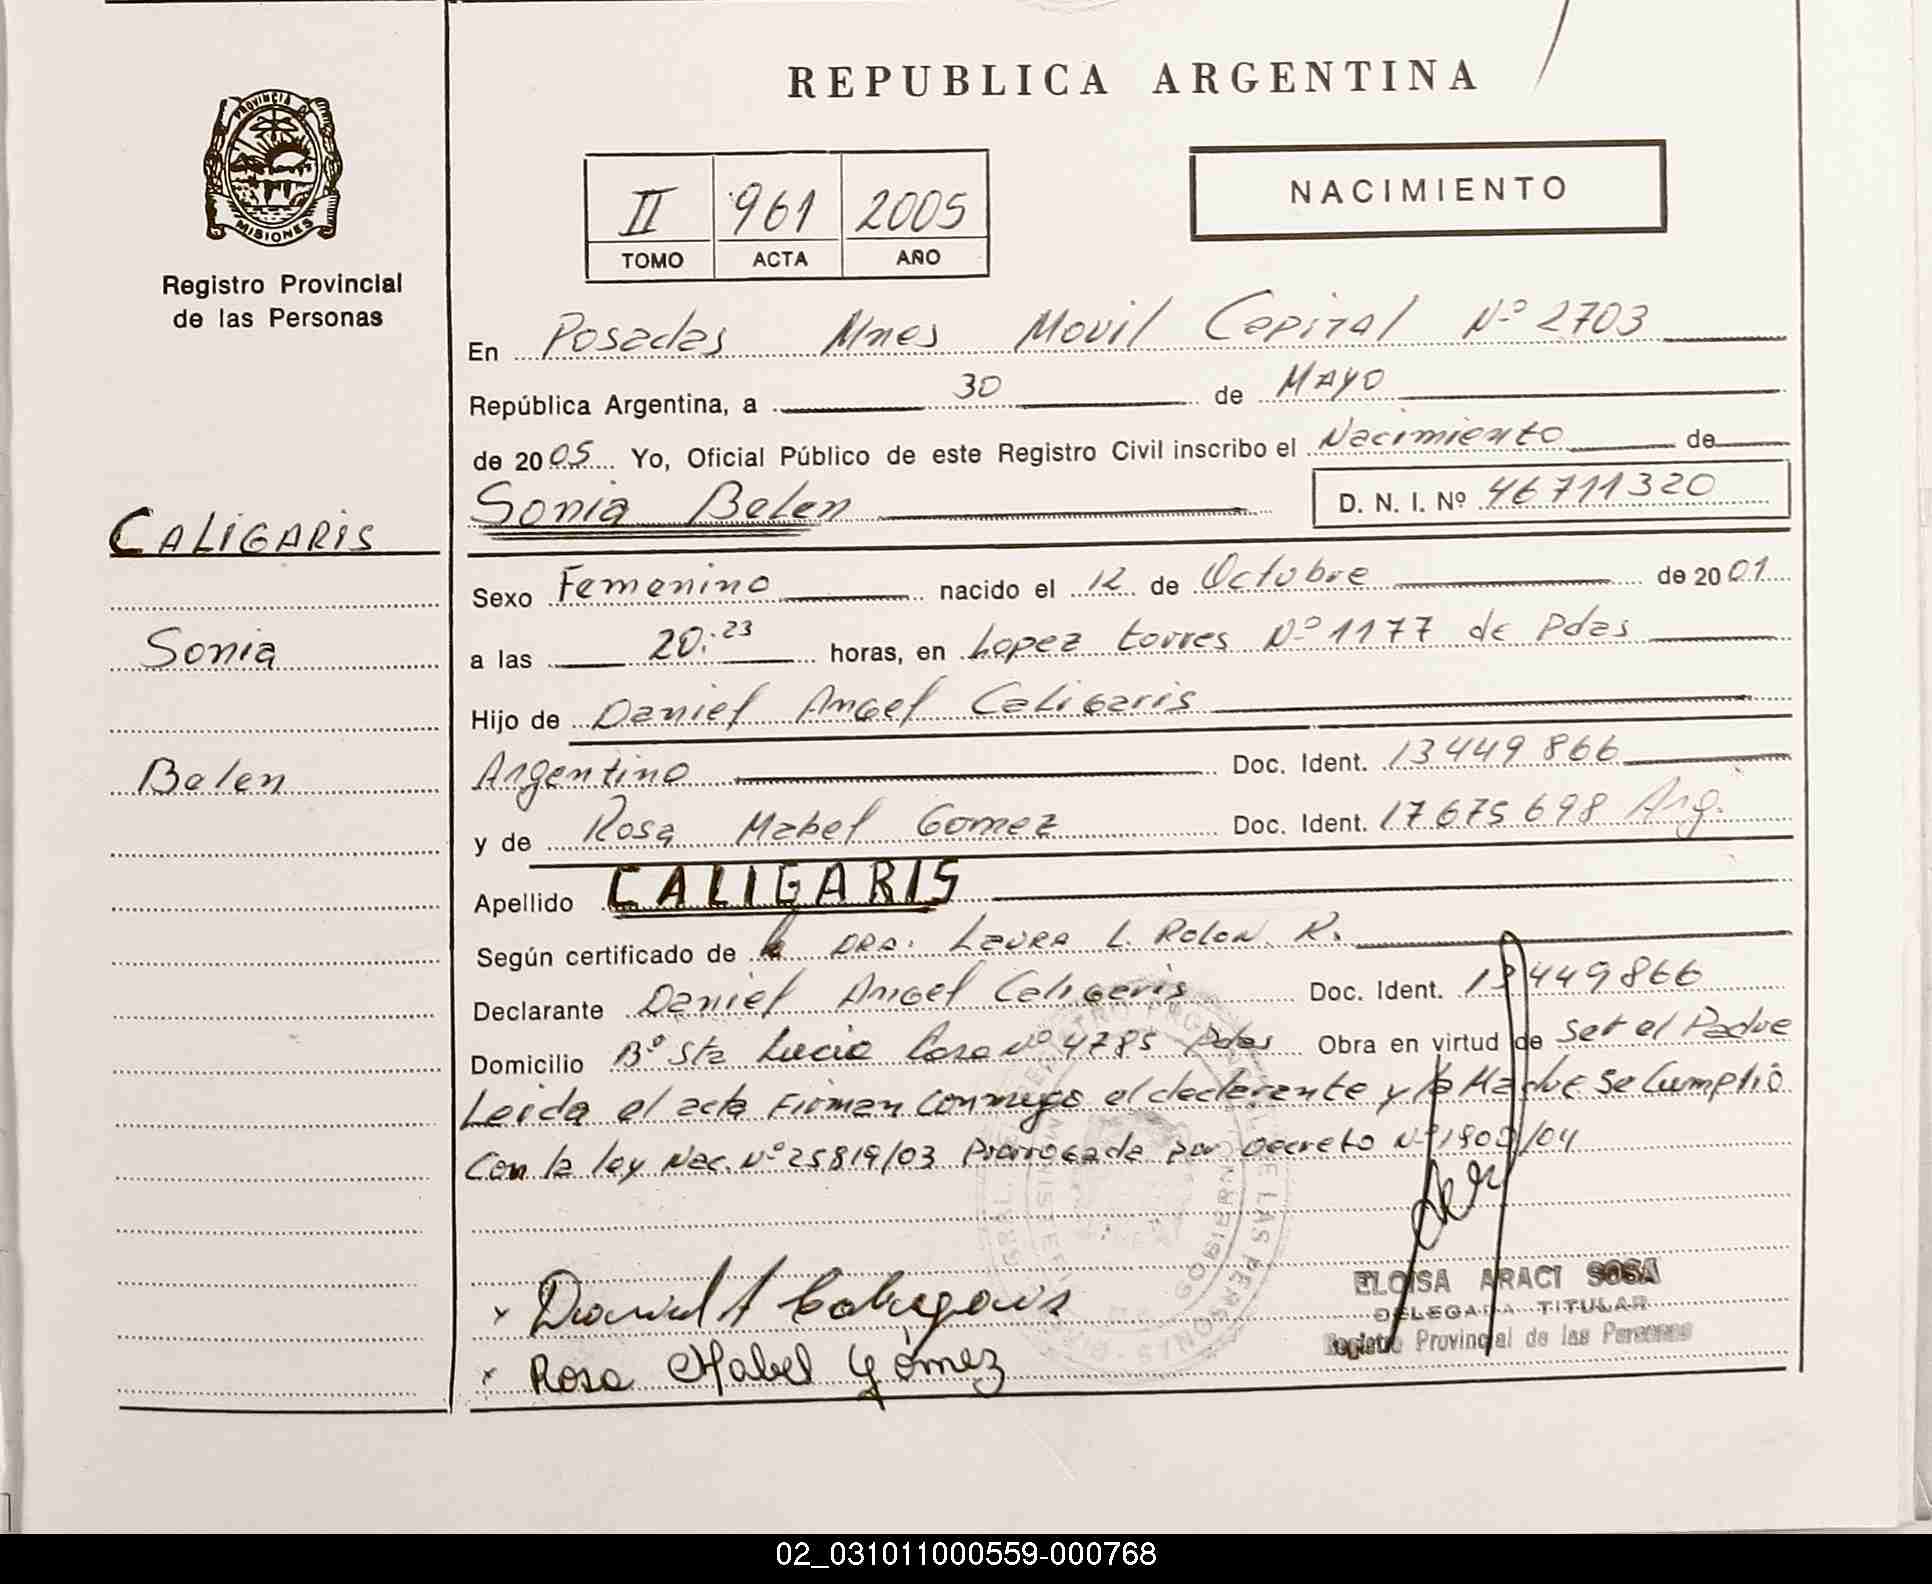 REPUBLICA ARGENTINA
PROVINCIA DE
MISIONES
Registro Provincial
de las Personas
II 961 2005
TOMO ACTA AÑO
NACIMIENTO
En Posadas Mnes Movil Capital Nº 2703
República Argentina, a 30 de MAYO
de 2005 Yo, Oficial Público de este Registro Civil inscribo el Nacimiento de
Sonia Belen D. N. I. Nº 46711320
CALIGARIS
Sonia
Belen
Sexo Femenino nacido el 12 de Octubre de 2001
a las 20:23 horas, en Lopez torres Nº 1177 de Pdas
Hijo de Daniel Angel Caligaris
Argentino Doc. Ident. 13449866
y de Rosa Mabel Gomez Doc. Ident. 17675698 Arg.
Apellido CALIGARIS
Según certificado de DRA. LAURA L. ROLON. R.
Declarante Daniel Angel Caligaris Doc. Ident. 13449866
Domicilio Bº Sta Lucia Casa Nº 4785 Pdas Obra en virtud de Ser el Padre
Leida el acta Firman conmigo el declarante y la Madre Se Cumplió
Con la ley Nac. Nº 25819/03 Prorrogada por Decreto Nº 1809/04
x Daniel A Caligaris
x Rosa Mabel Gómez
ELOISA ARACI SOSA
DELEGADA TITULAR
Registro Provincial de las Personas
02_031011000559-000768